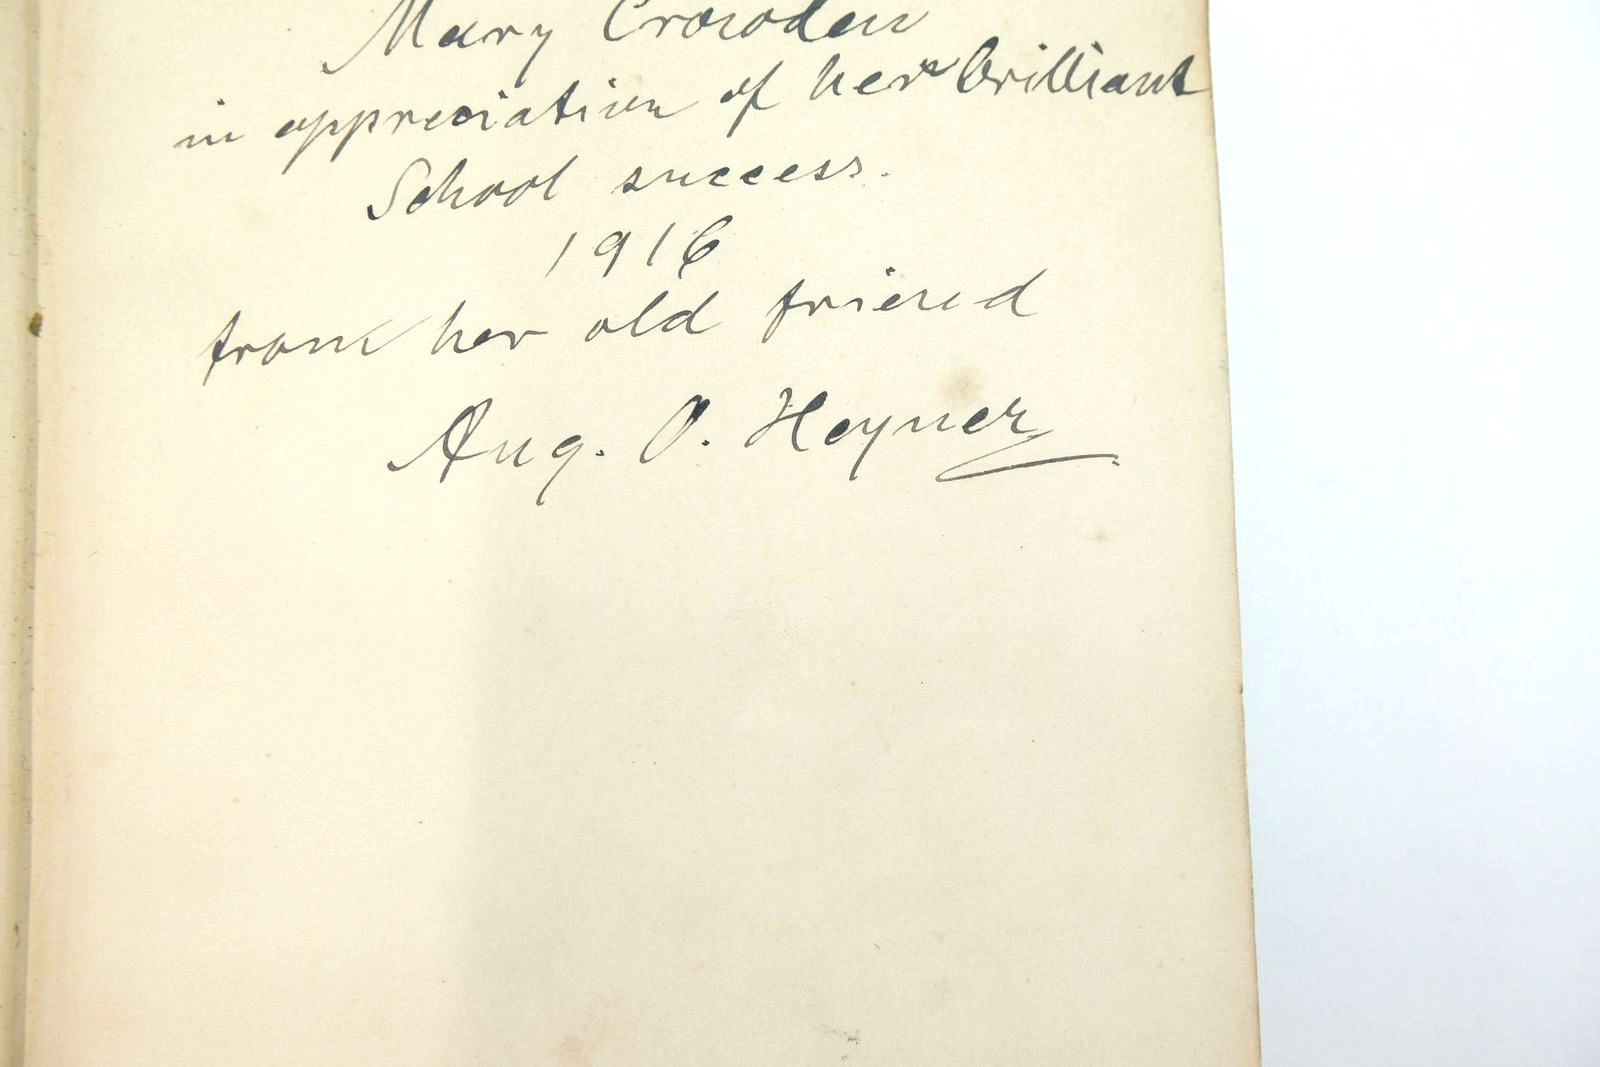 Mary Crowden
in appreciation of her brilliant
School success.
1916
from her old friend
Aug. O. Heyner